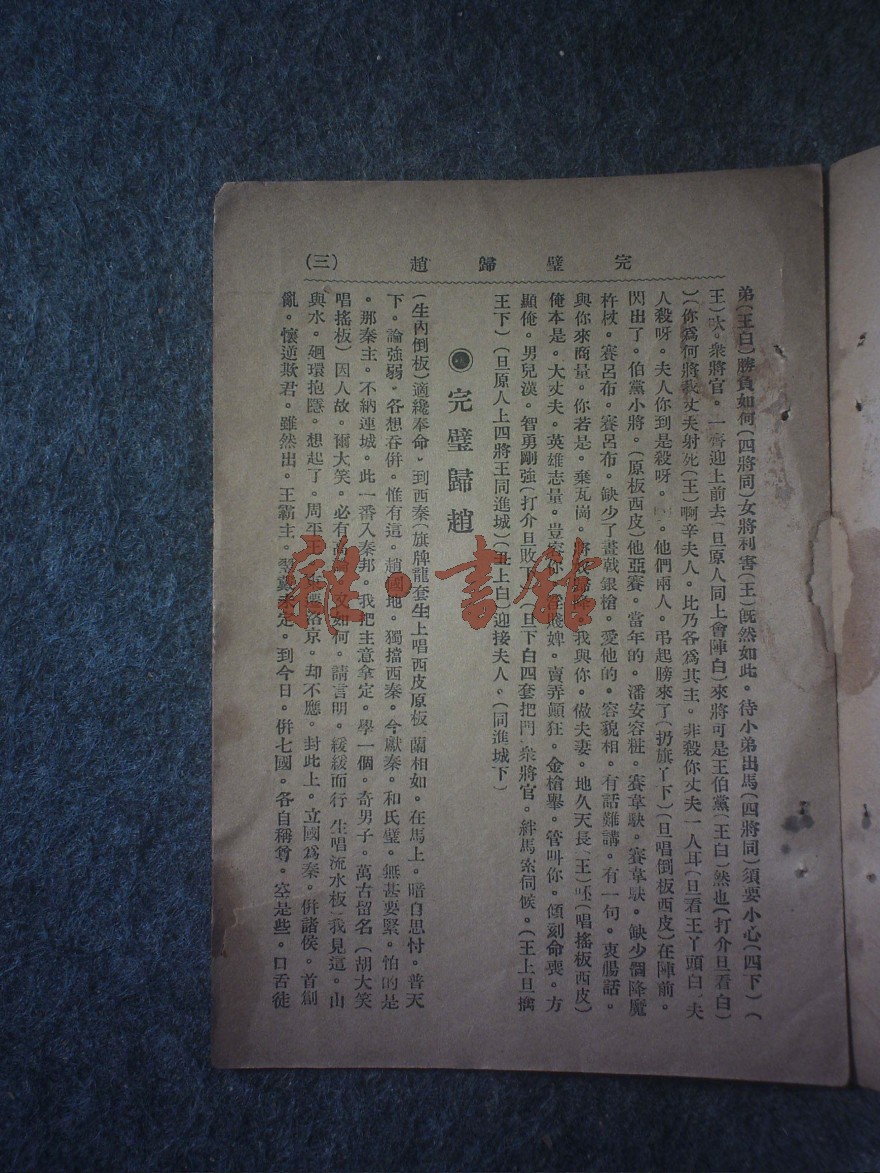 完璧歸趙 (三)
弟(王白)勝負如何(四將同)女將利害(王)旣然如此。待小弟出馬(四將同)須要小心(四下)(
王)吙。衆將官。一齊迎上前去(旦原人同上會陣白)來將可是王伯黨(王白)然也(打介旦看白)
)(你爲何將我丈夫射死(王)啊辛夫人。比乃各爲其主。非殺你丈夫一人耳(旦看王丫頭白)夫
人殺呀。夫人你到是殺呀。他們兩人。弔起膀來了(扔旗丫下)(旦唱倒板西皮)在陣前。
閃出了。伯黨小將。(原板西皮)他亞賽。當年的。潘安容粧。賽韋馱。賽韋馱。缺少個降魔
杵杖。賽呂布。賽呂布。缺少了畫戟銀槍。愛他的。容貌相。有話難講。有一句。衷腸話。
與你來商量。你若是。棄瓦崗。我與你。做夫妻。地久天長(王)呸(唱搖板西皮)
俺本是。大丈夫。英雄志量。豈容你。賤婢。賣弄顚狂。金槍舉。管叫你。傾刻命喪。方
顯俺。男兒漢。智勇剛強(打介旦敗下)(旦下白四套把門)衆將官。絆馬索伺候。(王上旦擒
王下)(旦原人上四將王同進城)(丑上白)迎接夫人。(同進城下)
完璧歸趙
(生內倒板)適纔奉命。到西秦(旗牌龍套生上唱西皮原板)藺相如。在馬上。暗自思忖。普天
下。論強弱。各想吞併。惟有這。趙國地。獨擋西秦。今獻秦。和氏璧。無甚要緊。怕的是
。那秦主。不納連城。此一番入秦邦。我把主意拿定。學一個。奇男子。萬古留名(胡大笑
唱搖板)因人故。爾大笑。必有高。如何。請言明。緩緩而行 生唱流水板)我見這。山
與水。廻環抱隱。想起了。周平王。洛京。却不應。封此上。立國爲秦。併諸侯。首創
亂。懷逆欺君。雖然出。王霸主。未定。到今日。併七國。各自稱尊。空是些。口舌徒
雜·書館